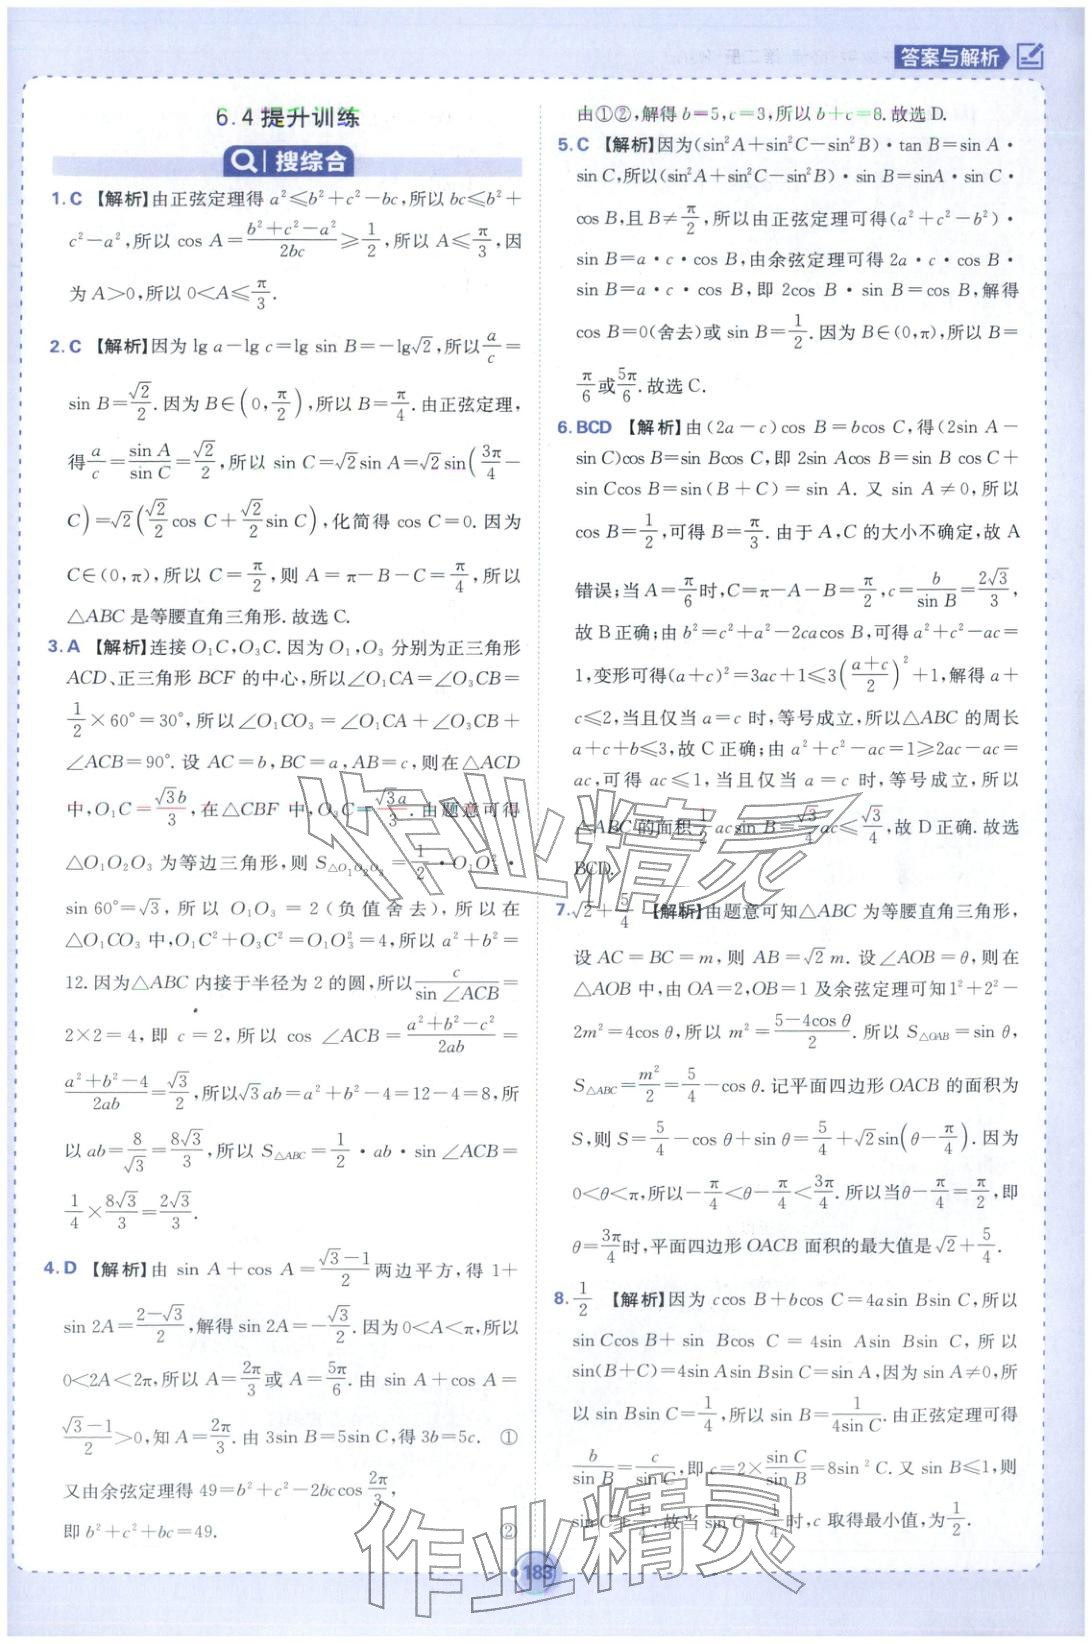 答案与解析
6.4 提升训练
搜综合
1. C 【解析】由正弦定理得 a²≤b²+c²-bc,所以 bc≤b²+
c²-a²,所以 cos A=(b²+c²-a²)/(2bc)≥1/2,所以 A≤π/3,因
为 A>0,所以 0<A≤π/3.
2. C 【解析】因为 lg a-lg c=lg sin B=-lg√2,所以 a/c=
sin B=√2/2.因为 B∈(0,π/2),所以 B=π/4.由正弦定理,
得 a/c=sin A/sin C=√2/2,所以 sin C=√2sin A=√2sin(3π/4-
C)=√2(√2/2 cos C+√2/2 sin C),化简得 cos C=0.因为
C∈(0,π),所以 C=π/2,则 A=π-B-C=π/4,所以
△ABC 是等腰直角三角形.故选 C.
3. A 【解析】连接 O₁C,O₃C.因为 O₁,O₃ 分别为正三角形
ACD、正三角形 BCF 的中心,所以∠O₁CA=∠O₃CB=
1/2×60°=30°,所以∠O₁CO₃=∠O₁CA+∠O₃CB+
∠ACB=90°.设 AC=b,BC=a,AB=c,则在△ACD
中,O₁C=√3b/3,在△CBF 中,O₃C=√3a/3.由题意可得
△O₁O₂O₃ 为等边三角形,则 S△O₁O₂O₃=1/2·O₁O₃²·
sin 60°=√3,所以 O₁O₃=2(负值舍去),所以在
△O₁CO₃ 中,O₁C²+O₃C²=O₁O₃²=4,所以 a²+b²=
12.因为△ABC 内接于半径为 2 的圆,所以 c/sin∠ACB=
2×2=4,即 c=2,所以 cos∠ACB=(a²+b²-c²)/(2ab)=
(a²+b²-4)/(2ab)=√3/2,所以√3ab=a²+b²-4=12-4=8,所
以 ab=8/√3=8√3/3,所以 S△ABC=1/2·ab·sin∠ACB=
1/4×8√3/3=2√3/3.
4. D 【解析】由 sin A+cos A=(√3-1)/2 两边平方,得 1+
sin 2A=(2-√3)/2,解得 sin 2A=-√3/2.因为 0<A<π,所以
0<2A<2π,所以 A=2π/3 或 A=5π/6.由 sin A+cos A=
(√3-1)/2>0,知 A=2π/3.由 3sin B=5sin C,得 3b=5c. ①
又由余弦定理得 49=b²+c²-2bccos 2π/3,
即 b²+c²+bc=49. ②
由①②,解得 b=5,c=3,所以 b+c=8.故选 D.
5. C 【解析】因为(sin²A+sin²C-sin²B)·tan B=sin A·
sin C,所以(sin²A+sin²C-sin²B)·sin B=sinA·sin C·
cos B,且 B≠π/2,所以由正弦定理可得(a²+c²-b²)·
sin B=a·c·cos B,由余弦定理可得 2a·c·cos B·
sin B=a·c·cos B,即 2cos B·sin B=cos B,解得
cos B=0(舍去)或 sin B=1/2.因为 B∈(0,π),所以 B=
π/6 或 5π/6.故选 C.
6. BCD 【解析】由(2a-c)cos B=bcos C,得(2sin A-
sin C)cos B=sin Bcos C,即 2sin Acos B=sin B cos C+
sin Ccos B=sin(B+C)=sin A.又 sin A≠0,所以
cos B=1/2,可得 B=π/3.由于 A,C 的大小不确定,故 A
错误;当 A=π/6时,C=π-A-B=π/2,c=b/sin B=2√3/3,
故 B 正确;由 b²=c²+a²-2cacos B,可得 a²+c²-ac=
1,变形可得(a+c)²=3ac+1≤3((a+c)/2)²+1,解得 a+
c≤2,当且仅当 a=c 时,等号成立,所以△ABC 的周长
a+c+b≤3,故 C 正确;由 a²+c²-ac=1≥2ac-ac=
ac,可得 ac≤1,当且仅当 a=c 时,等号成立,所以
△ABC 的面积 1/2 acsin B=√3/4 ac≤√3/4,故 D 正确.故选
BCD.
7. √2+5/4 【解析】由题意可知△ABC 为等腰直角三角形,
设 AC=BC=m,则 AB=√2m.设∠AOB=θ,则在
△AOB 中,由 OA=2,OB=1 及余弦定理可知 1²+2²-
2m²=4cos θ,所以 m²=(5-4cos θ)/2.所以 S△OAB=sin θ,
S△ABC=m²/2=5/4-cos θ.记平面四边形 OACB 的面积为
S,则 S=5/4-cos θ+sin θ=5/4+√2sin(θ-π/4).因为
0<θ<π,所以-π/4<θ-π/4<3π/4.所以当θ-π/4=π/2,即
θ=3π/4时,平面四边形 OACB 面积的最大值是√2+5/4.
8. 1/2 【解析】因为 ccos B+bcos C=4asin Bsin C,所以
sin Ccos B+sin Bcos C=4sin Asin Bsin C,所以
sin(B+C)=4sin Asin Bsin C=sin A,因为 sin A≠0,所
以 sin Bsin C=1/4,所以 sin B=1/(4sin C).由正弦定理可得
b/sin B=c/sin C,即 c=2×sin C/sin B=8sin²C.又 sin B≤1,则
sin C≥1/4.故当 sin C=1/4时,c 取得最小值,为1/2.
183
作业精灵
作业精灵